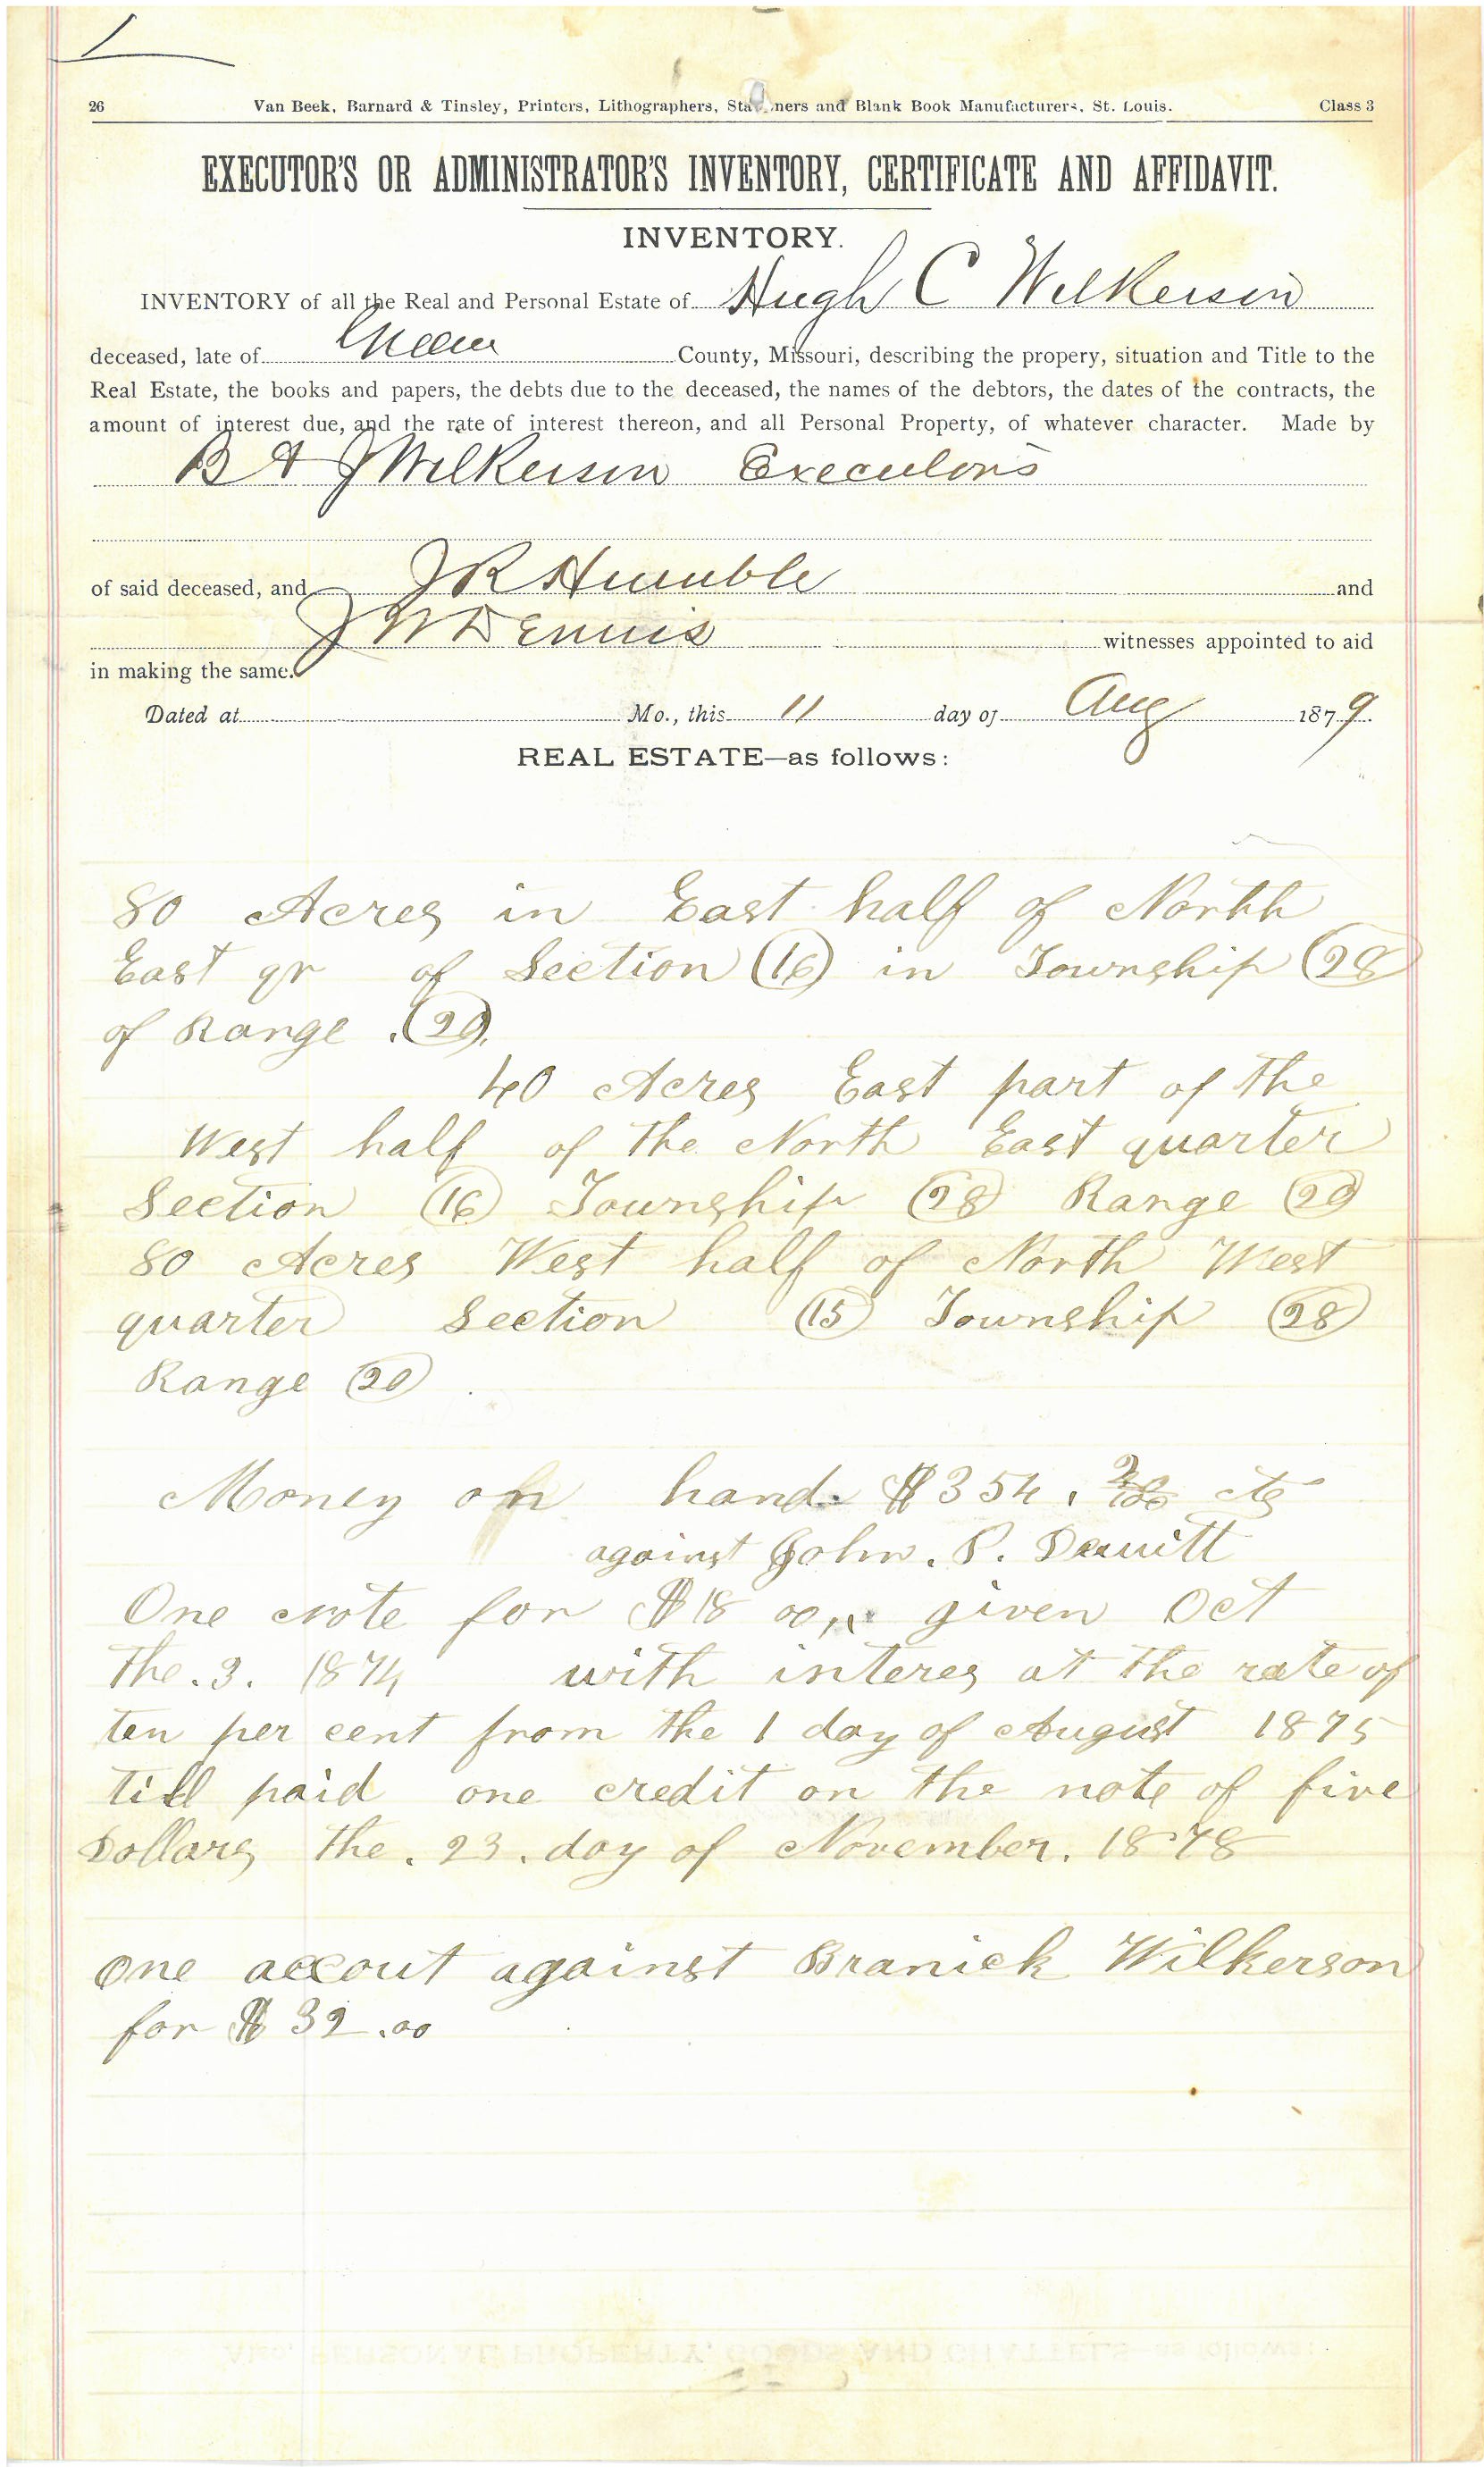 26 Van Beek, Barnard & Tinsley, Printers, Lithographers, Stationers and Blank Book Manufacturers, St. Louis. Class 3
EXECUTOR'S OR ADMINISTRATOR'S INVENTORY, CERTIFICATE AND AFFIDAVIT.
INVENTORY.
INVENTORY of all the Real and Personal Estate of Hugh C Wilkerson
deceased, late of Green County, Missouri, describing the propery, situation and Title to the
Real Estate, the books and papers, the debts due to the deceased, the names of the debtors, the dates of the contracts, the
amount of interest due, and the rate of interest thereon, and all Personal Property, of whatever character. Made by
B & J Wilkerson Executors
of said deceased, and J R Humble and
J W Dennis witnesses appointed to aid
in making the same.
Dated at Mo., this 11 day of Aug 1879.
REAL ESTATE—as follows:
80 Acres in East half of North
East qr of Section (16) in Township (28)
of Range (20)
40 Acres East part of the
West half of the North East quarter
Section (16) Township (28) Range (20)
80 Acres West half of North West
quarter Section (15) Township (28)
Range (20)
Money on hand $354. cts
against John. P. Dewitt
One note for $18 00 given Oct
the. 3. 1874 with interes at the rate of
ten per cent from the 1 day of August 1875
till paid one credit on the note of five
Dollars the. 23. day of November. 1878
one accout against Branick Wilkerson
for $ 32.00
AND PERSONAL PROPERTY, GOODS AND CHATTELS—as follows: